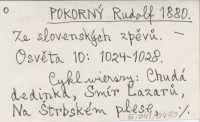 POKORNÝ Rudolf 1880.
Ze slovenských zpěvů. —
Osvěta 10: 1024-1028.
Cykl wierszy: Chudá
dedinka, Smír Lazarů,
Na Štrbském plese, ·/·